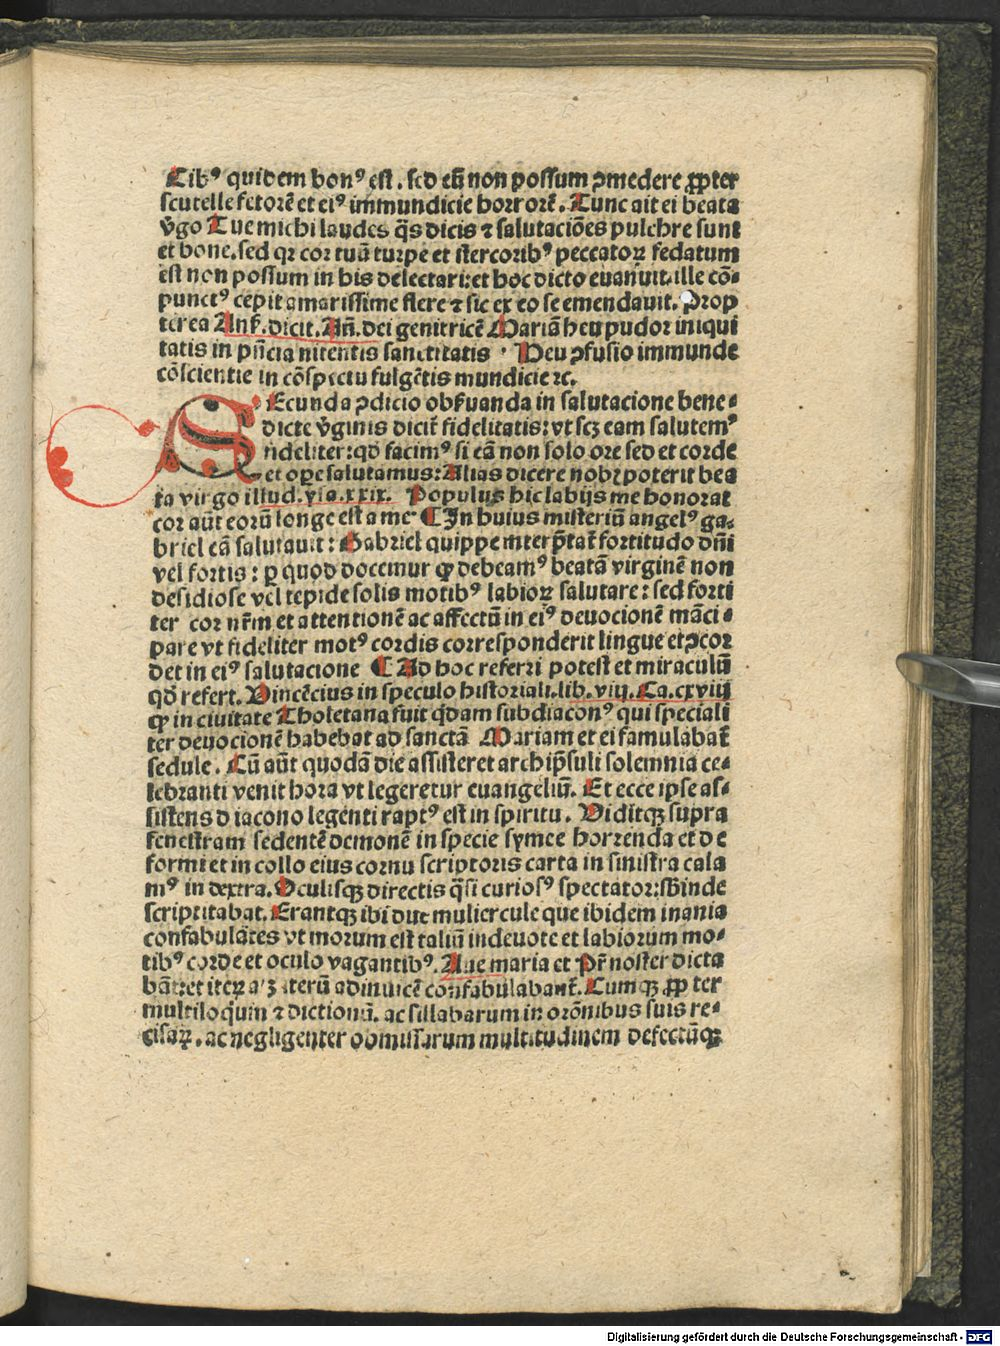 Cibꝰ quidem bonꝰ est . sed eū non possum ꝯmedere ꝓpter
scutelle fetorē et eiꝰ immundicie horrorē. Tunc ait ei beata
v̄go Tue michi laudes q̄s dicis ⁊ salutaciões pulchre sunt
et bone. sed qꝛ cor tuū turpe et stercoribꝰ peccatoꝝ fedatum
est non possum in his delectari: et hoc dicto euanuit. ille cō-
punctꝰ cepit amarissime flere ⁊ sic ex eo se emendauit. Prop
terea Ans̄. dicit. Añ. dei genitricē Mariā heu pudor iniqui
tatis in pn̄cia nitentis sanctitatis · Heu ꝯfusio immunde
cōscientie in cōspectu fulgētis mundicie ꝛc.
SEcunda ꝯdicio obs̄uanda in salutacione bene-
dicte v̄ginis dicit̄ fidelitatis: vt scꝫ eam salutemꝰ
fideliter: qd̄ facimꝰ si eā non solo ore sed et corde
et oꝑe salutamus: Alias dicere nobꝭ poterit bea
ta virgo illud. ysa. xxix. Populus hic labijs me honorat
cor aūt eorū longe est a me ¶ In huius misteriū angelꝰ ga-
briel eā salutauit: Gabriel quippe interp̄tat̄ fortitudo dn̄i
vel fortis: ꝑ quod docemur ꝙ debeamꝰ beatā virginē non
desidiose vel tepide solis motibꝰ labioꝝ salutare: sed forti
ter cor nr̄m et attentionē ac affectū in eiꝰ deuocionē māci-
pare vt fideliter motꝰ cordis corresponderit lingue et ꝯcor
det in eiꝰ salutacione ¶ Ad hoc referri potest et miraculū
qd̄ refert. Vincēcius in speculo historiali. lib. viij. Ca. cxviij
ꝙ in ciuitate Tholetana fuit q̄dam subdiaconꝰ qui speciali
ter deuocionē habebat ad sanctā Mariam et ei famulabat̄
sedule. Cū aūt quodā die assisteret archip̄suli solemnia ce-
lebranti venit hora vt legeretur euangeliū. Et ecce ipse as-
sistens diacono legenti raptꝰ est in spiritu. Viditqꝫ supra
fenestram sedentē demonē in specie symee horrenda et de
formi et in collo eius cornu scriptoris carta in sinistra cala
mꝰ in dextra. Oculisqꝫ directis q̄si curiosꝰ spectator: sb̄inde
scriptitabat. Erantqꝫ ibi due muliercule que ibidem inania
confabulātes vt morum est taliū indeuote et labiorum mo-
tibꝰ corde et oculo vagantibꝰ. Aue maria et Pr̄ noster dicta
bāt: et iteꝝ atqꝫ iterū adinuicē confabulabant̄. Cumqꝫ ꝓpter
multiloquiū ⁊ dictionū. ac sillabarum in orōnibus suis re-
cisaꝝ. ac negligenter obmissarum multitudinem defectūqꝫ
Digitalisierung gefördert durch die Deutsche Forschungsgemeinschaft - DFG